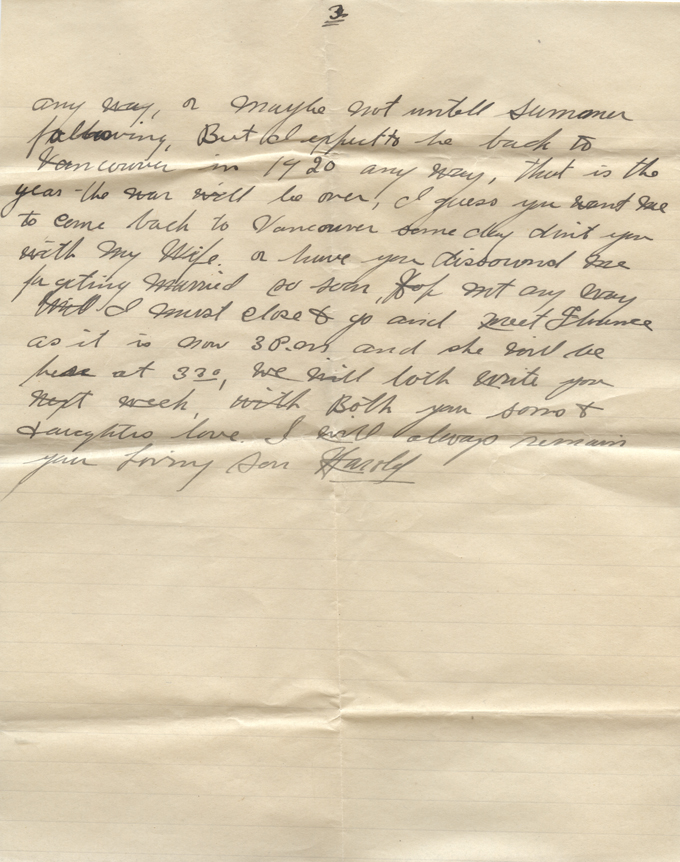 3.
any way, or maybe not untell summer
following, But I expect to be back to
Vancouver in 1920 any way, that is the
year the war will be over, I guess you want me
to come back to Vancouver some day dint you
with my Wife. or have you disownd me
for geting married so soon, Hop not any way
I must close & go and meet Flurence
as it is now 3 P.m and she will be
hear at 330, we will both write you
next week, with Both your sons &
daughters love. I will always remain
your Loving Son Harold